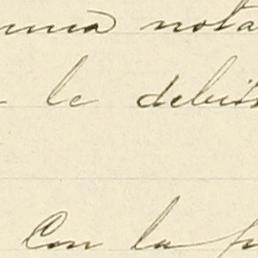 una nota
le debi
Con la